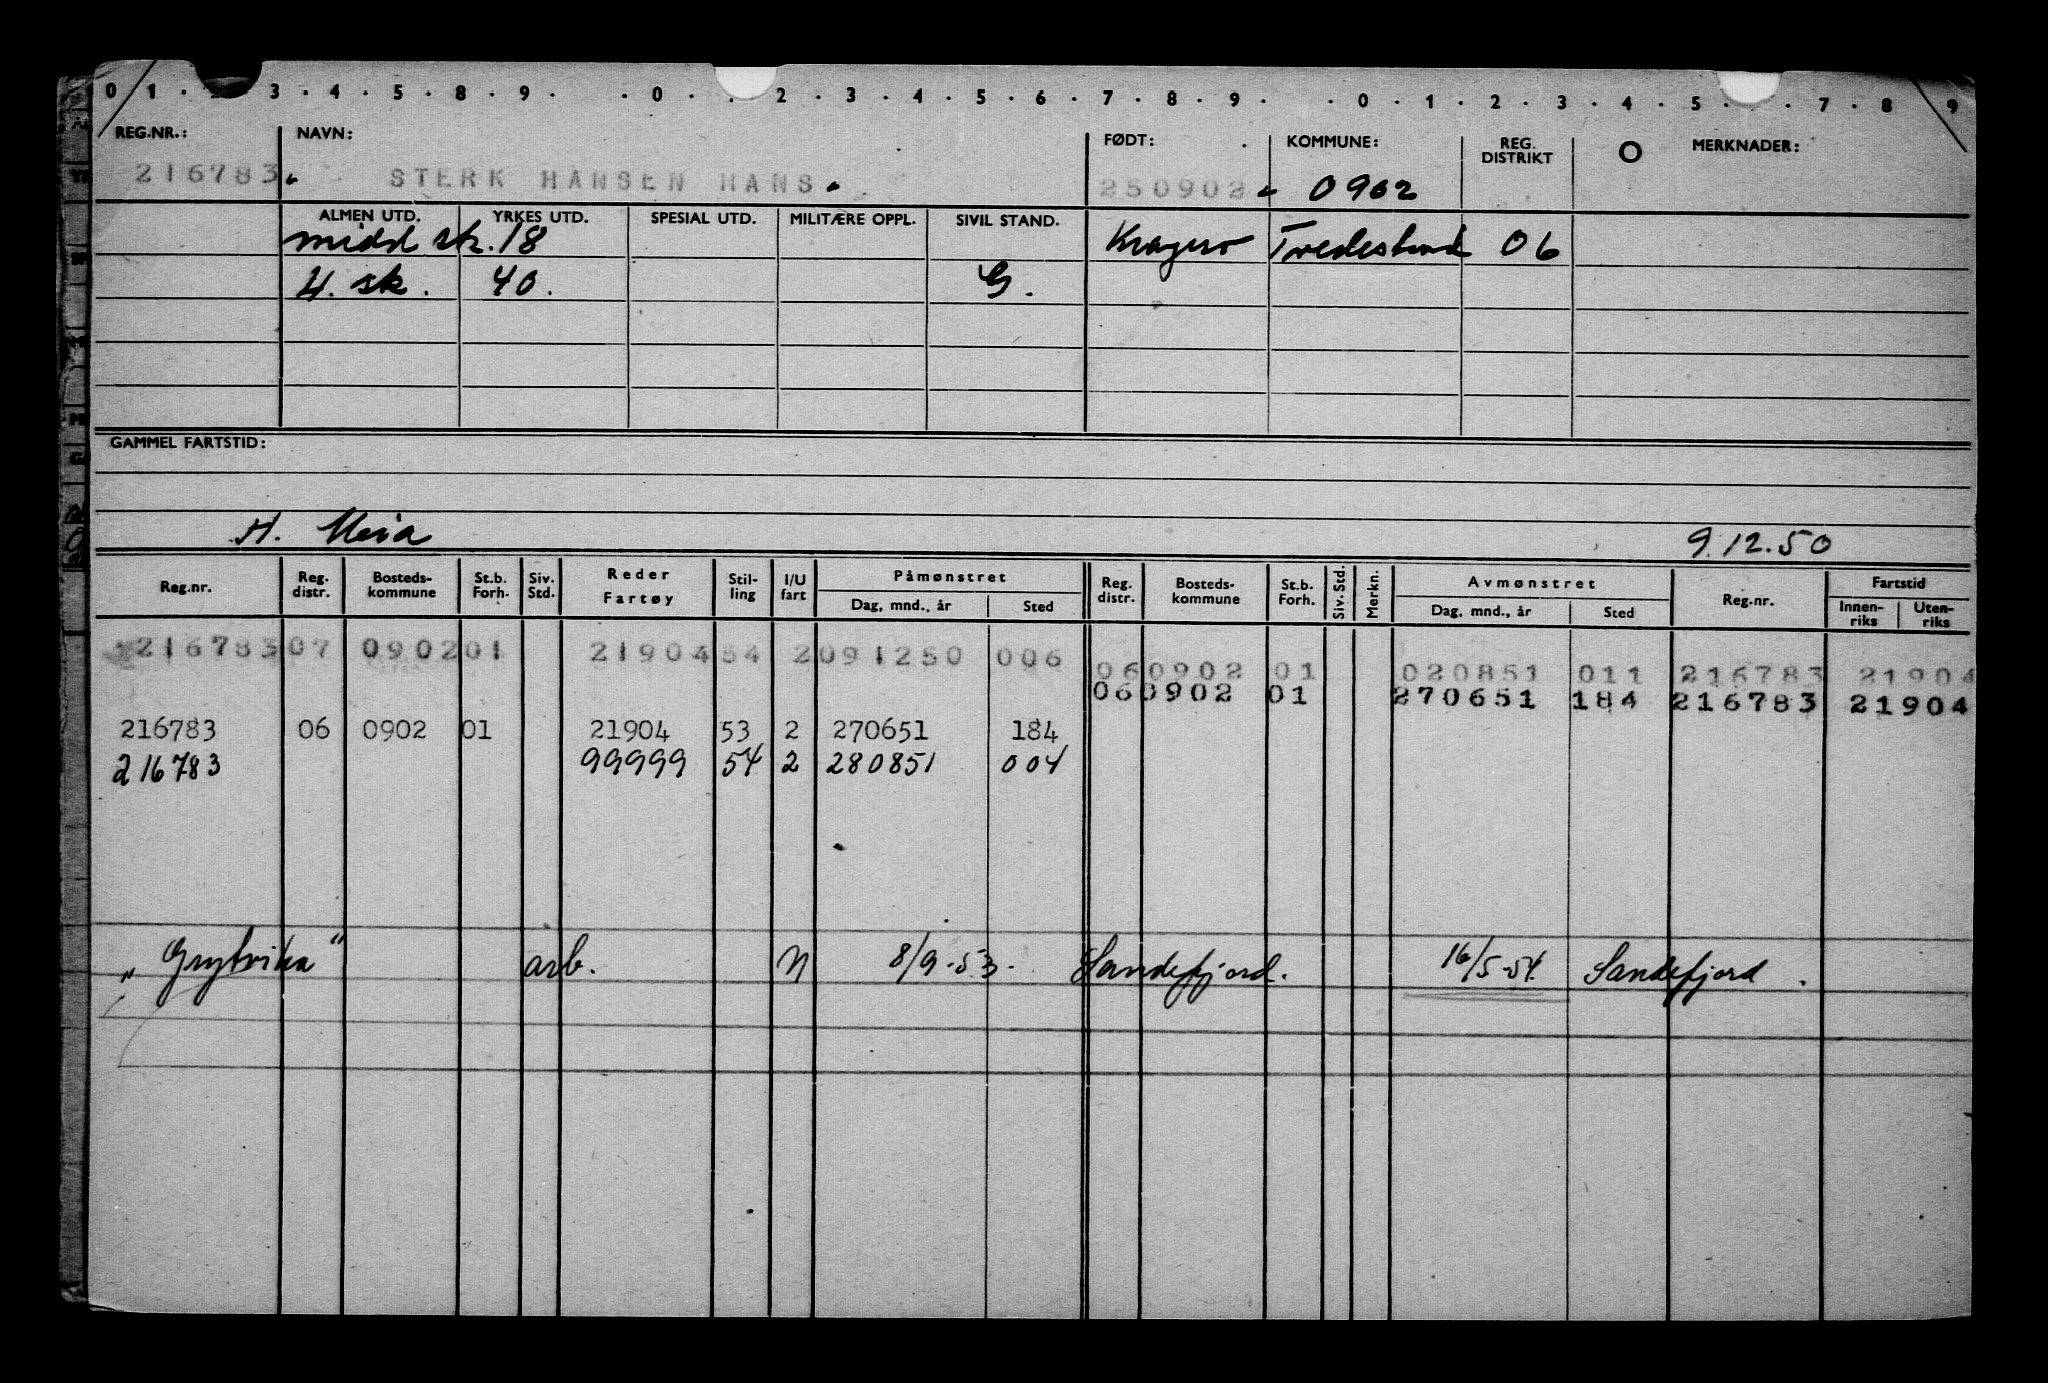 0 1 . 3 . 4 . 5 . 8 . 9 . . 0 . . 2 . 3 . 4 . 5 . 6 . 7 . 8 . 9 . . 0 . 1 . 2 . 3 . 4 . 5 . . 7 . 8 9
REG.NR.: NAVN: FØDT: KOMMUNE: REG. DISTRIKT O MERKNADER:
216783 STERK HANSEN HANS 250902 0902
ALMEN UTD. YRKES UTD. SPESIAL UTD. MILITÆRE OPPL. SIVIL STAND.
midd sk. 18 Kragerø Tvedestrand 06
H. sk. 40. G.
GAMMEL FARTSTID:
H. 9.12.50
Reg.nr. Reg. distr. Bosteds-kommune St.b. Forh. Siv. Std. Reder Fartøy Stil-ling I/U fart Påmønstret Dag, mnd., år Sted Reg. distr. Bosteds-kommune St.b. Forh. Siv. Std. Merkn. Avmønstret Dag, mnd., år Sted Reg.nr. Fartstid Innen-riks Uten-riks
216783 07 0902 01 21904 54 2 091250 006 06 0902 01 020851 011 216783 21904
06 0902 01 270651 184 216783 21904
216783 06 0902 01 21904 53 2 270651 184
216783 99999 54 2 280851 004
"Grytvika" arb. N 8/9-53. Sandefjord. 16/5-54. Sandefjord.